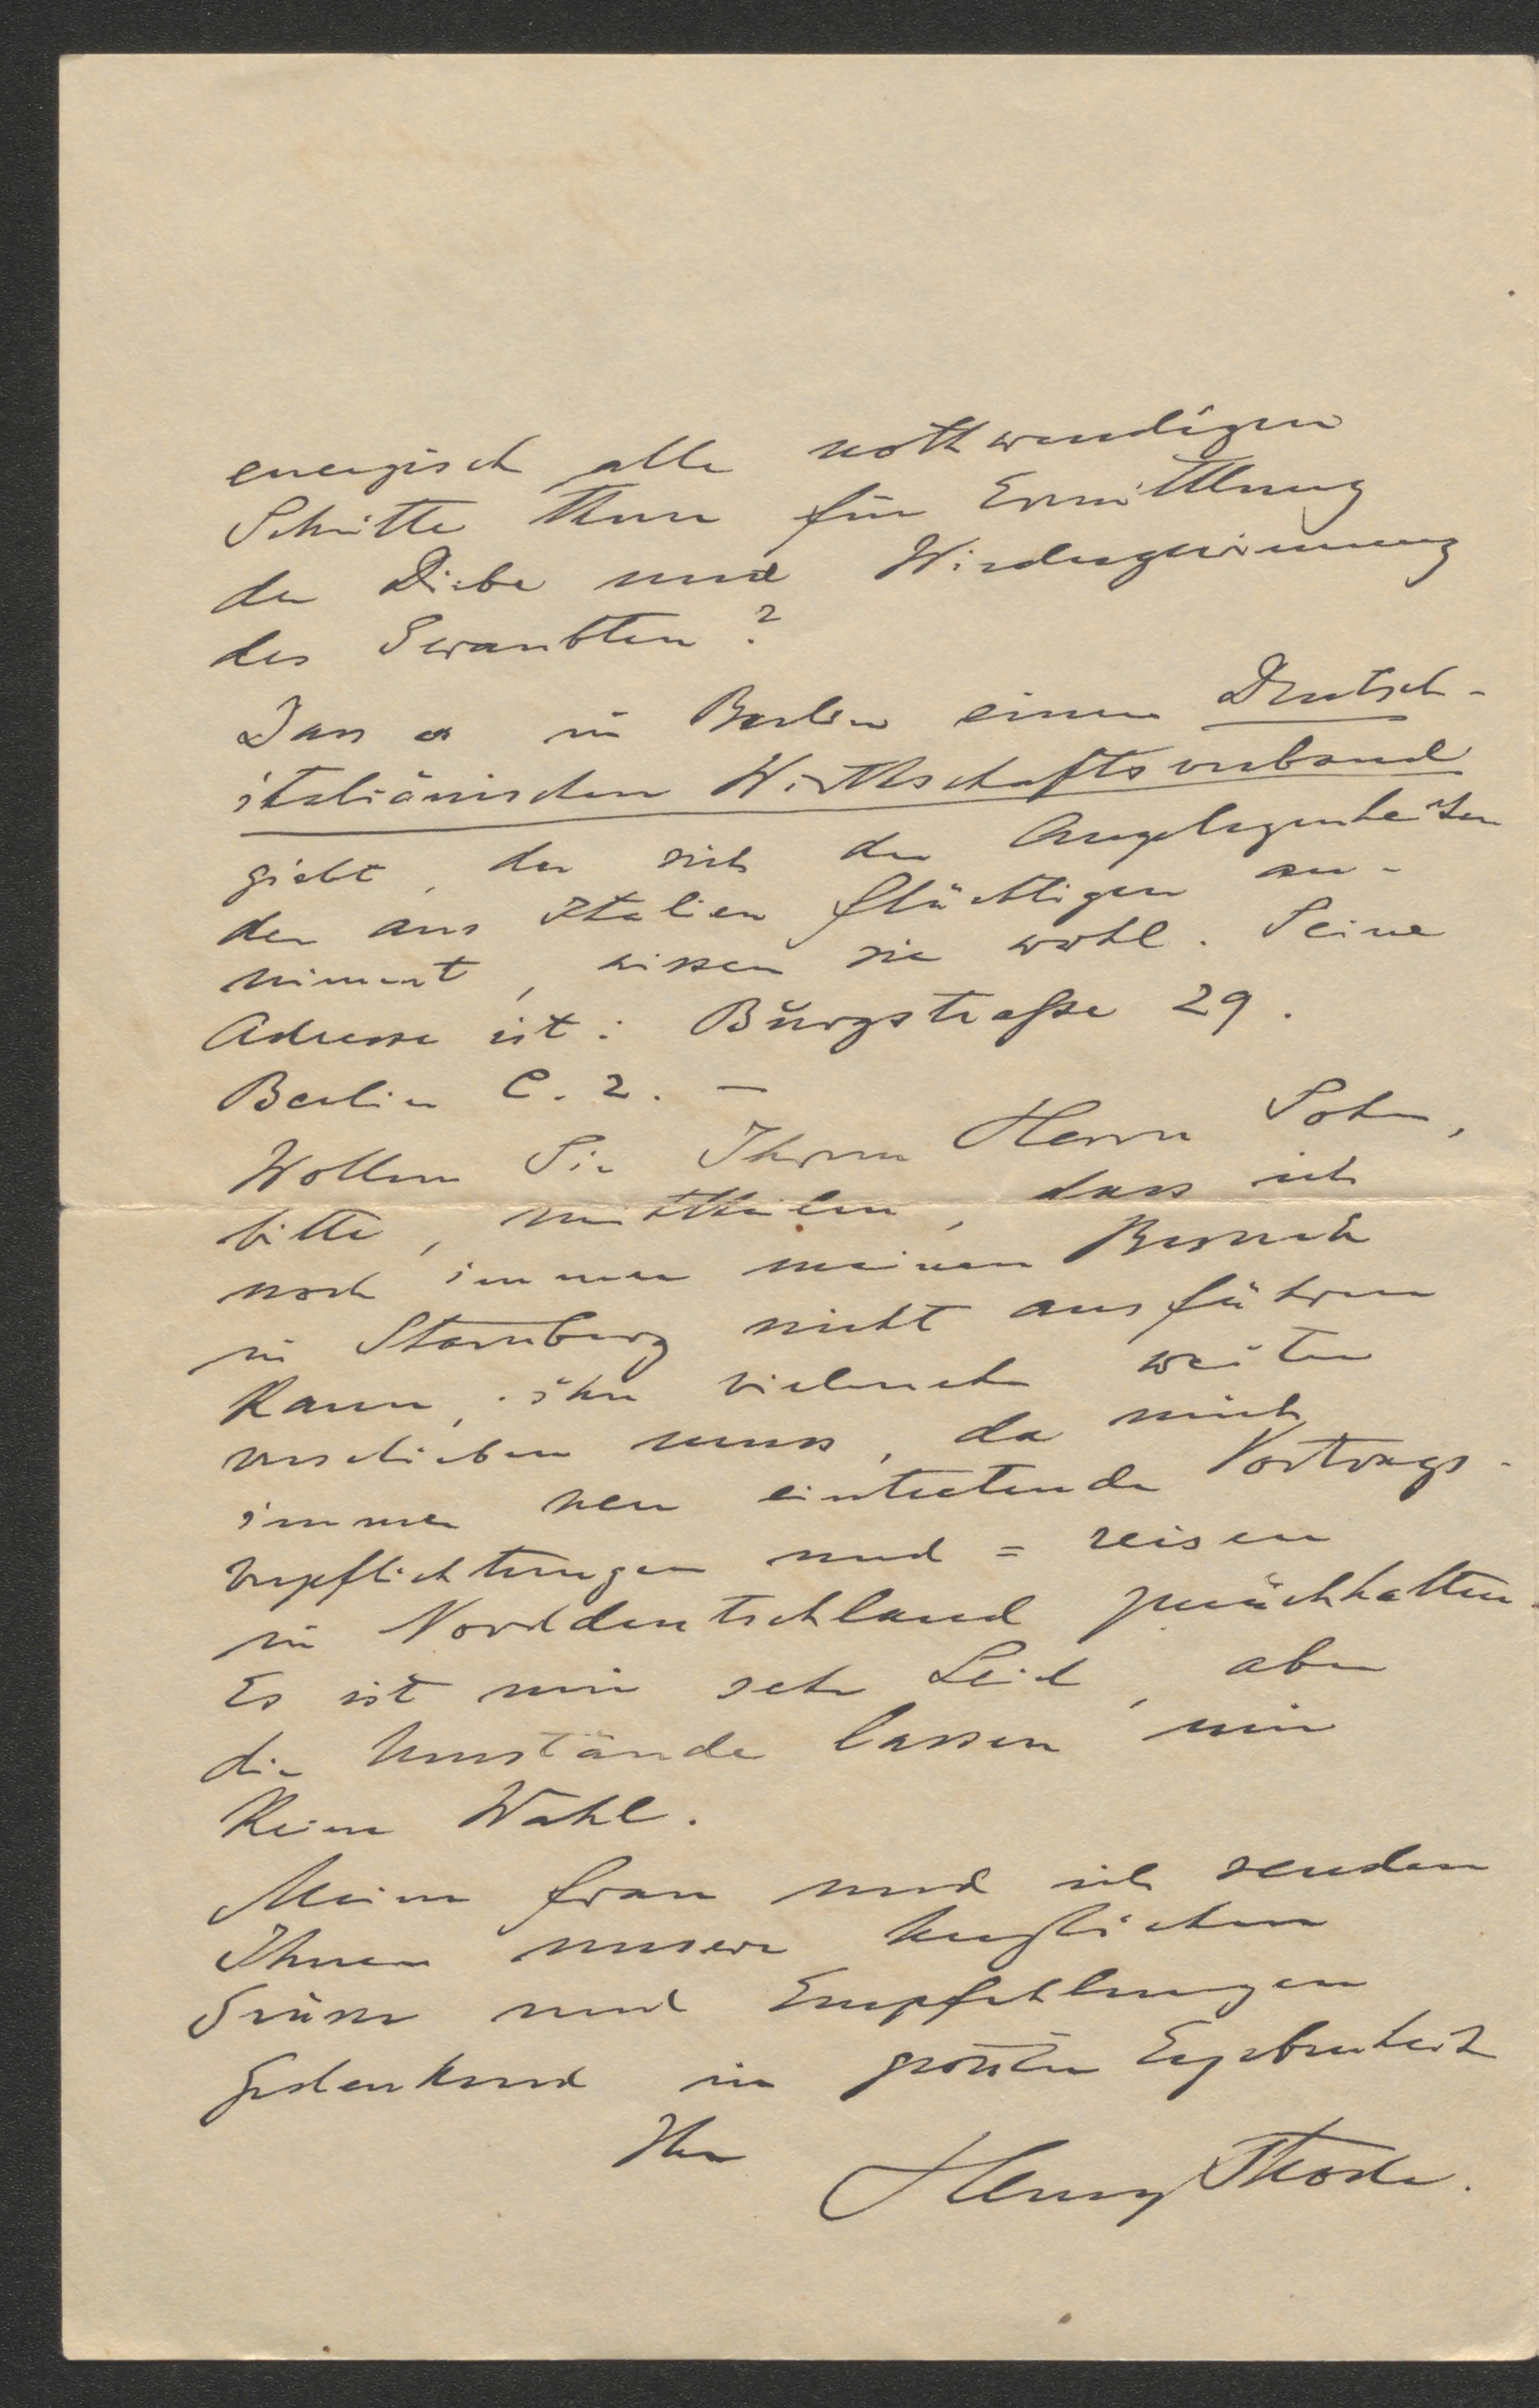 energisch alle nothwendigen
Schritte thun für Ermittlung
der Diebe und Wiedergewinnung
des Geraubten?
Dass es in Berlin einen Deutsch-
italiänischen Wirthschaftsverband
giebt, der sich der Angelegenheiten
der aus Italien flüchtigen an-
nimmt, wissen sie wohl. Seine
Adresse ist: Burgstraße 29.
Berlin C. 2. —
Wollen Sie Ihrem Herrn Sohn,
bitte, mittheilen, dass ich
noch immer meinen Besuch
in Starnberg nicht ausführen
kann, ihn vielmehr weiter
verschieben muss, da mich
immer neu eintretende Vortrags-
verpflichtungen und = reisen
in Norddeutschland zurückhalten.
Es ist mir sehr Leid, aber
die Umstände lassen mir
keine Wahl.
Meine Frau und ich senden
Ihnen unsere herzlichen
Grüsse und Empfehlungen
Gedenkend in grösster Ergebenheit
Ihr Henry Thode.